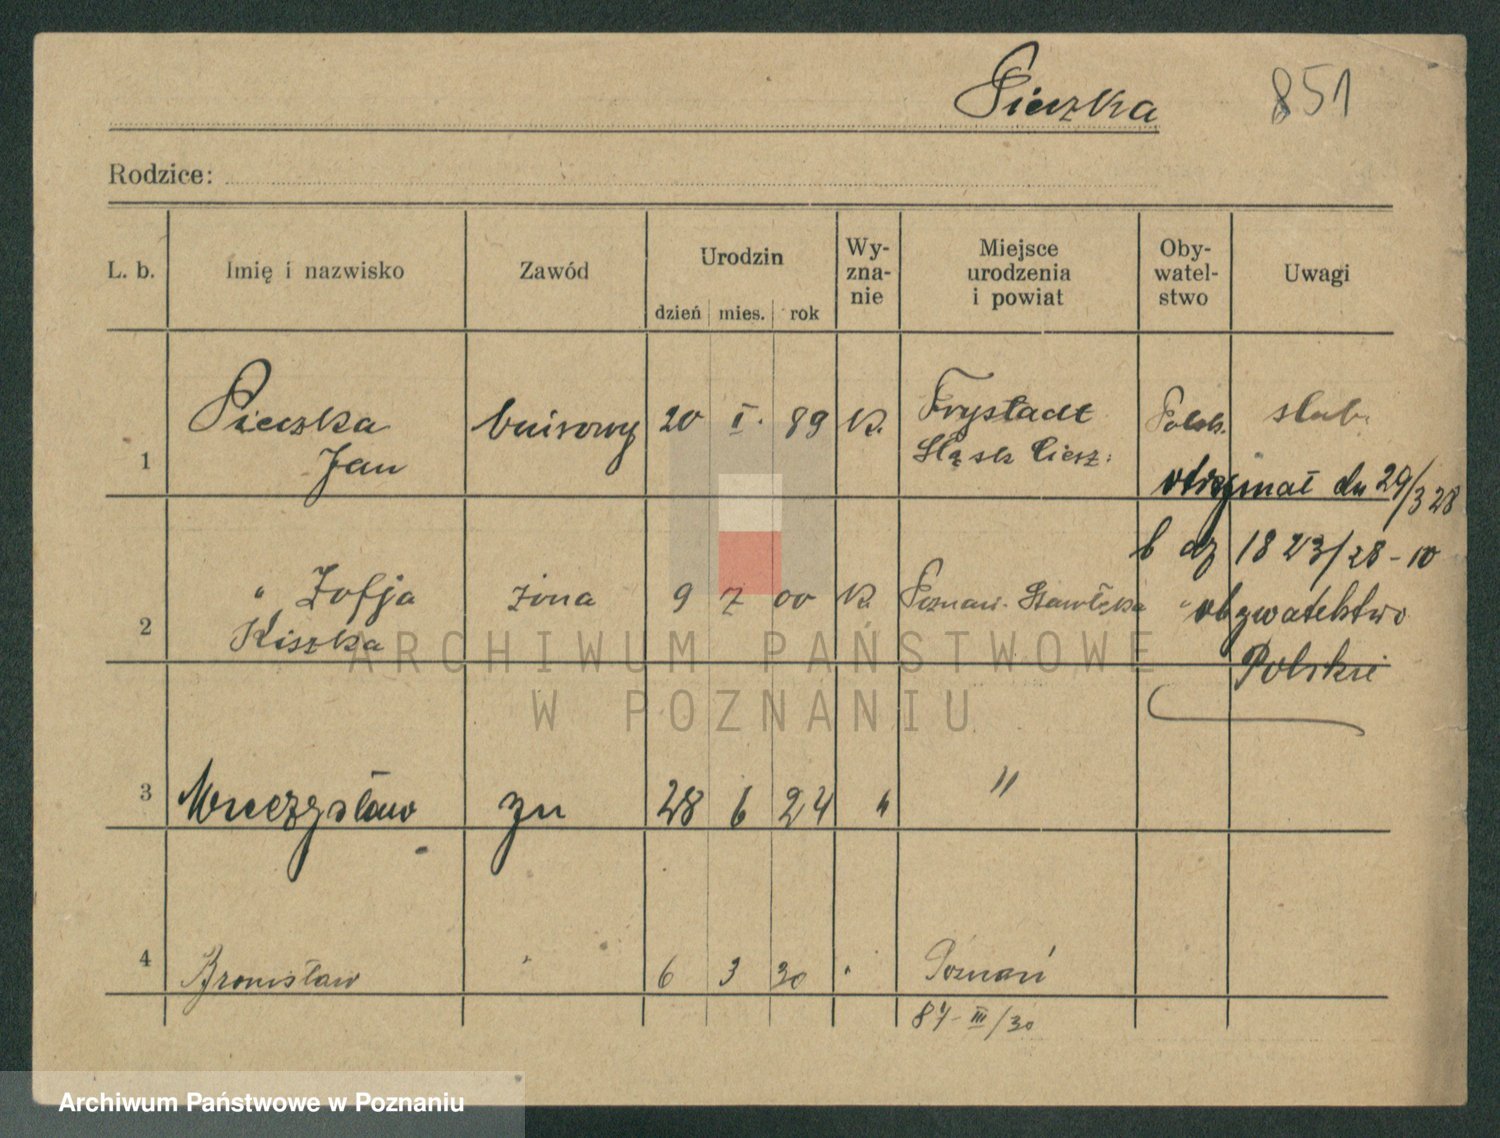 Pieczka
851
Rodzice:
L. b. Imię i nazwisko Zawód Urodzin dzień mies. rok Wy-zna-nie Miejsce urodzenia i powiat Oby-watel-stwo Uwagi
1 Pieczka Jan biurowy 20 I. 89 k. Frystadt Śląsk Ciesz: Polsk.
otrzymał dn 29/3 28
L dz 1823/28-10
obywatelstwo
Polskie
2 " Zofja Kiszka żona 9 7 00 k. Poznań-
3 Mieczysław syn 28 6 24 " "
4 Bronisław " 6 3 30 " Poznań
87-III/30
ARCHIWUM PAŃSTWOWE
W POZNANIU
Archiwum Państwowe w Poznaniu